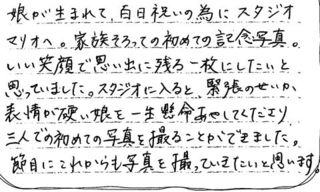 娘が生まれて、百日祝いの為にスタジオ
マリオへ。家族そろっての初めての記念写真。
いい笑顔で思い出に残る一枚にしたいと
思っていました。スタジオに入ると、緊張のせいか、
表情が硬い娘を一生懸命あやしてくださり
三人での初めての写真を撮ることができました。
節目にこれからも写真を撮っていきたいと思います。